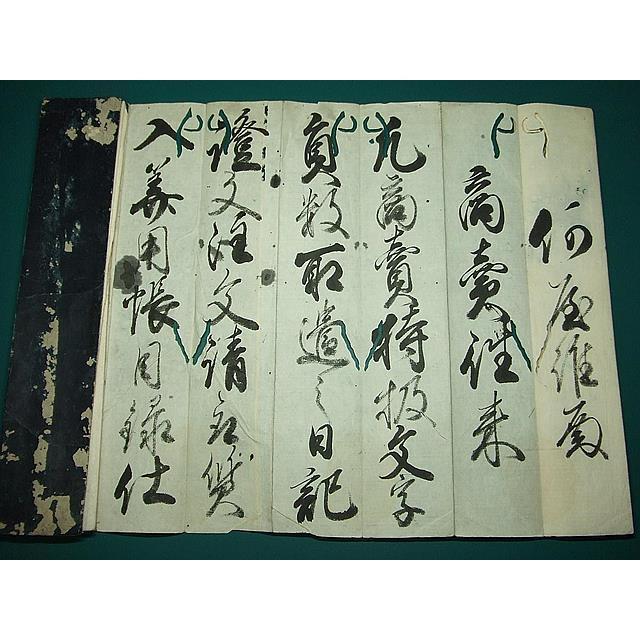 商賣徃来
凡商賣持扱文字
員数取遣之日記
證文注文請取質
入算用帳目録仕